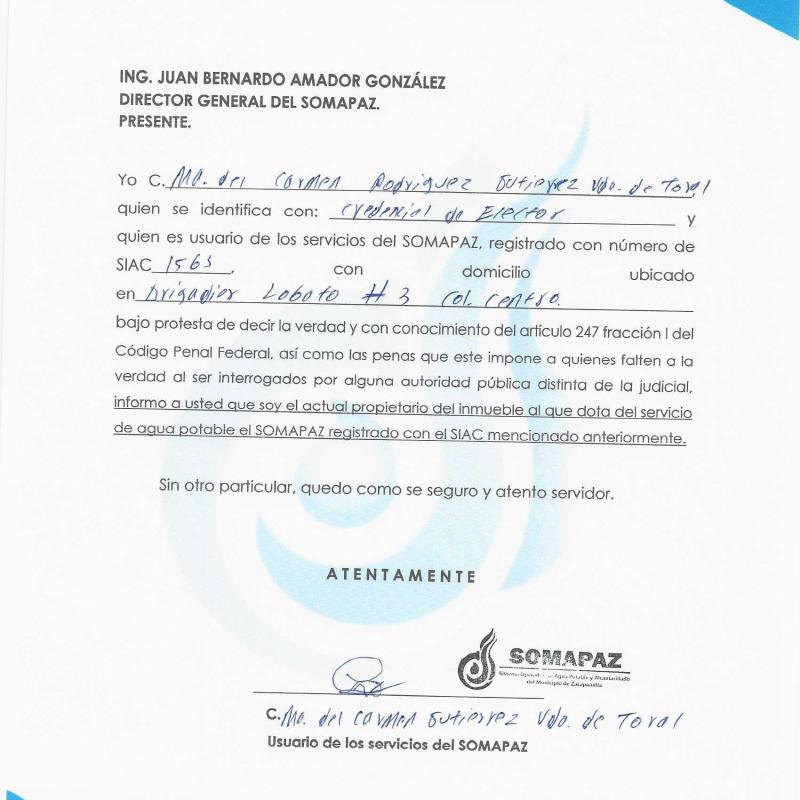 ING. JUAN BERNARDO AMADOR GONZÁLEZ
DIRECTOR GENERAL DEL SOMAPAZ.
PRESENTE.
Yo C. Ma. del Carmen Rodriguez Gutierrez Vda. de Toral
quien se identifica con: credencial de Elector y
quien es usuario de los servicios del SOMAPAZ, registrado con número de
SIAC 1565, con domicilio ubicado
en Brigadier Lobato # 3 Col. Centro.
bajo protesta de decir la verdad y con conocimiento del artículo 247 fracción I del
Código Penal Federal, así como las penas que este impone a quienes falten a la
verdad al ser interrogados por alguna autoridad pública distinta de la judicial,
informo a usted que soy el actual propietario del inmueble al que dota del servicio
de agua potable el SOMAPAZ registrado con el SIAC mencionado anteriormente.
Sin otro particular, quedo como se seguro y atento servidor.
ATENTAMENTE
SOMAPAZ
Sistema Agua Potable y Alcantarillado
del Municipio de Zacapoaxtla
C. Ma. del Carmen Gutierrez Vda. de Toral
Usuario de los servicios del SOMAPAZ